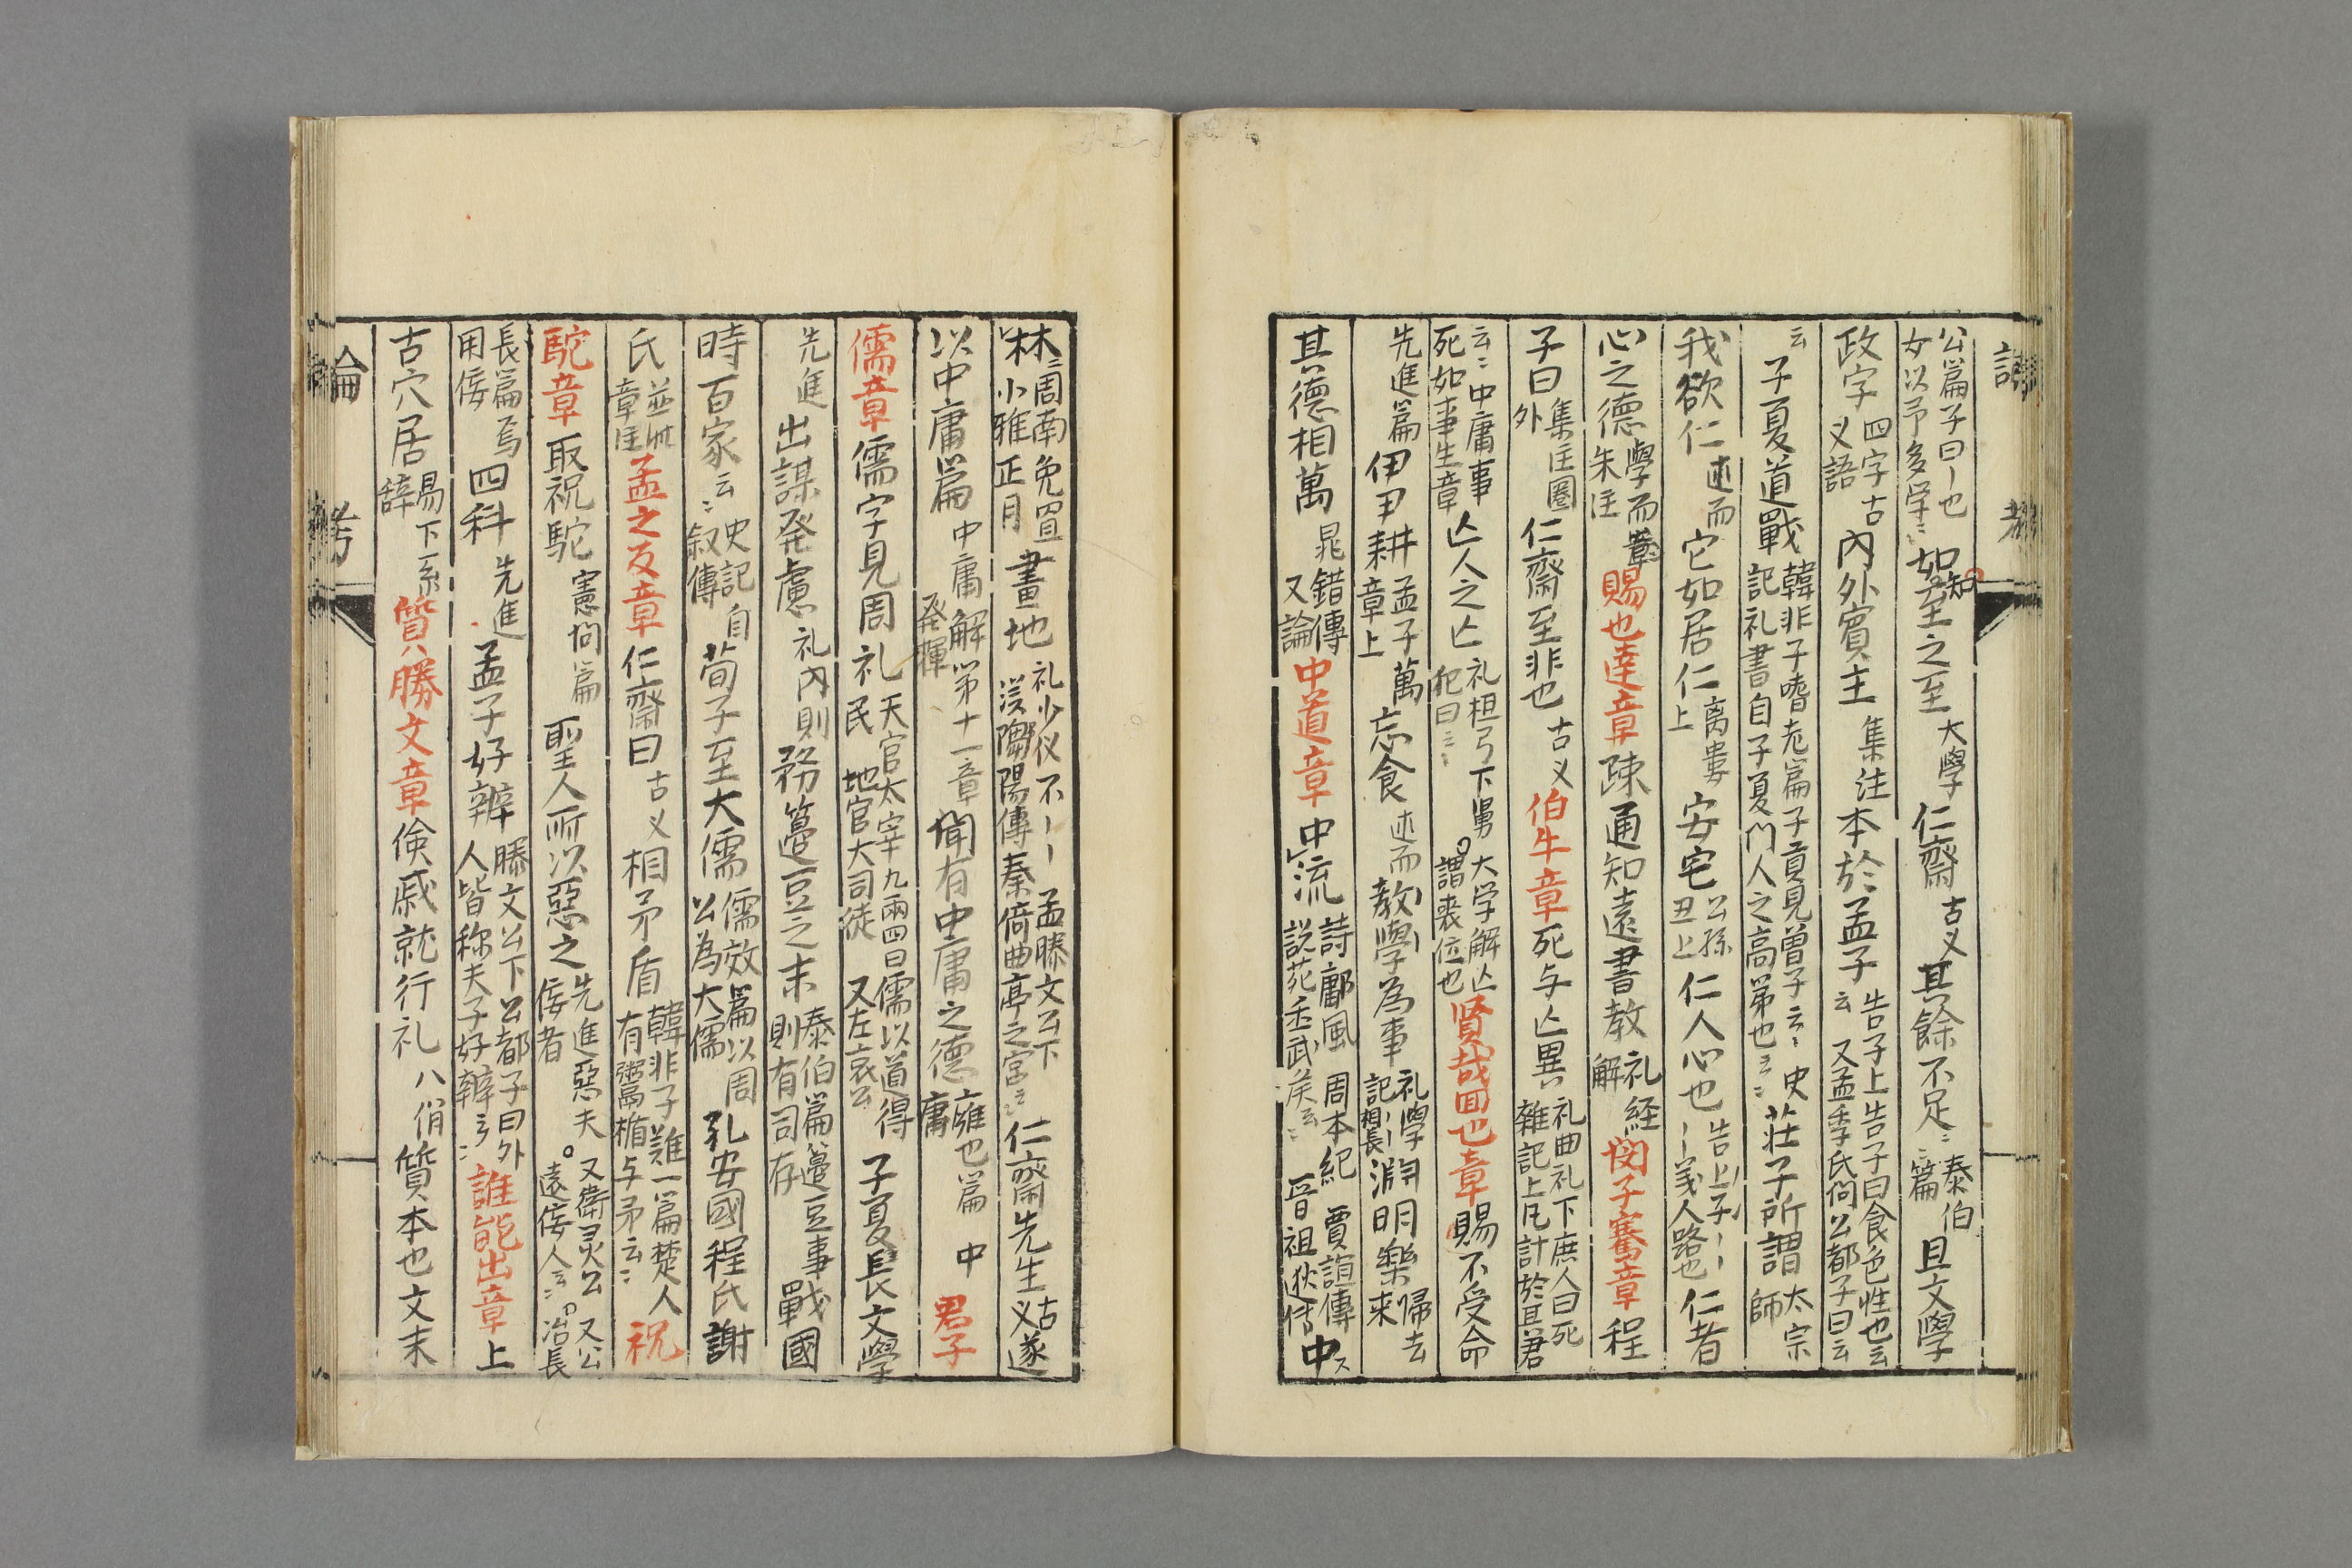 公篇子曰〻也女以予多学〻如知至之至大學仁齋古义其餘不足〻泰伯篇且文學
政字四字古义語内外賓主集注本於孟子告子上告子曰食色性也云云又孟季氏問公都子曰云
云子夏道戰韓非子喻老篇子貢見曽子云〻史記礼書自子夏門人之高第也云〻莊子所謂太宗師
我欲仁述而它如居仁离婁上安宅公孫丑上仁人心也告上孟子〻〻義人路也仁者
心之德學而篇朱注賜也達章陳通知遠書教礼経解閔子騫章程
子曰集注圏外仁齋至非也古义伯牛章死与亾異礼曲礼下庶人曰死雜記上凡訃於其君
云〻中庸事死如事生章亾人之亾礼檀弓下舅犯曰云〻大学解亾謂喪位也賢哉回也章賜不受命
先進篇伊尹耕孟子萬章上萬忘食述而教學為事礼學記相長淵明樂帰去来
其德相萬晁錯傳又論中道章中流詩鄘風説苑丕武矦云〻周本紀賈誼傳晋祖逖傳中又
林云周南兔罝小雅正月畫地礼少仪不〻漢鄒陽傳孟滕文公下秦倚曲亭之宮云〻仁齋先生古义遂
以中庸篇中庸解第十一章発揮間有中庸之德雍也篇中庸君子
儒章儒字見周礼天官太宰九兩四曰儒以道得民地官大司徒又左哀公子夏長文學
先進出謀発慮礼内則務籩豆之末泰伯篇籩豆事則有司存戰國
時百家云〻史記自叙傳荀子至大儒儒效篇以周公為大儒孔安國程氏謝
氏並此章注孟之反章仁齋曰古义相矛盾韓非子難一篇楚人有鬻楯与矛云〻祝
駝章取祝駝憲問篇聖人所以惡之先進惡夫佞者又衛灵公遠佞人云〻又公冶長
長篇焉用佞四科先進孟子好辨滕文公下公都子曰外人皆称夫子好辨云〻誰能出章上
古穴居易下系辞質勝文章倹戚就行礼八佾質本也文末
論
考